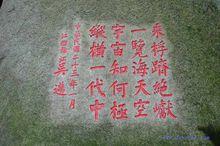 乘桴躋絕巘
一覽海天空
宇宙知何極
縱橫一代中
中華民國二十三年一月
江 吳邁